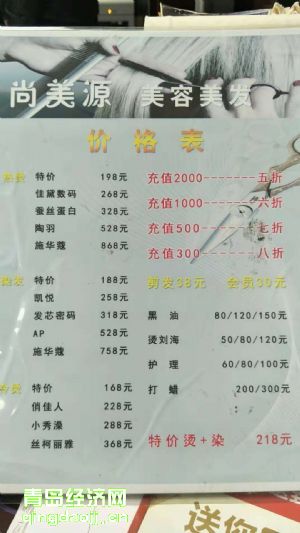 尚美源 美容美发
价格表
热烫 特价 198元
佳黛数码 268元
蚕丝蛋白 328元
陶羽 528元
施华蔻 868元
充值2000-------五折
充值1000-------六折
充值500-------七折
充值300-------八折
染发 特价 188元
凯悦 258元
发芯密码 318元
AP 528元
施华蔻 758元
剪发38元 会员30元
黑油 80/120/150元
烫刘海 50/80/120元
护理 60/80/100元
打蜡 200/300元
冷烫 特价 168元
俏佳人 228元
小秀澡 288元
丝柯丽雅 368元
特价烫+染 218元
青岛经济网
送您